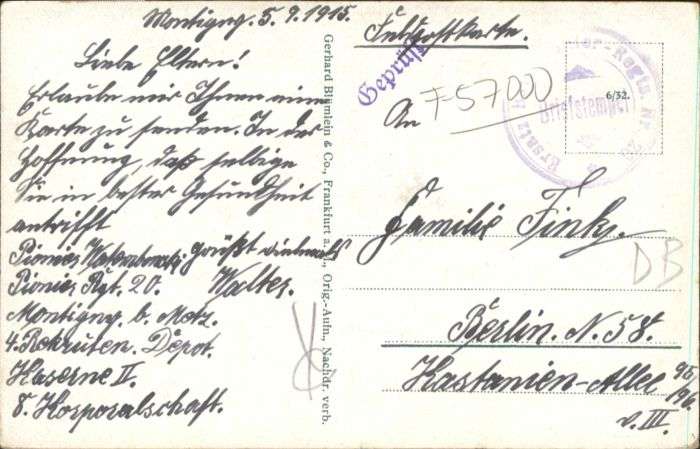 Montigny. 5. 9. 1915.
Liebe Eltern!
Erlaube mir Ihnen eine
Karte zu senden. In der
Hoffnung, daß selbige
Sie in bester Gesundheit
antrifft
Pionier grüßt vielmals
Pionier Rgt. 20. Walter.
Montigny b. Metz.
4. Rekruten. Depot.
Kaserne II.
8. Korporalschaft.
Gerhard Blümlein & Co., Frankfurt a. M., Orig.-Aufn., Nachdr. verb.
Feldpostkarte.
Geprüft
An 757000
6/32.
Ersatz Regts Nr
Briefstempel
Familie Finks.
DB
Berlin. N. 58.
Kastanien-Allee 95/96
v. III.